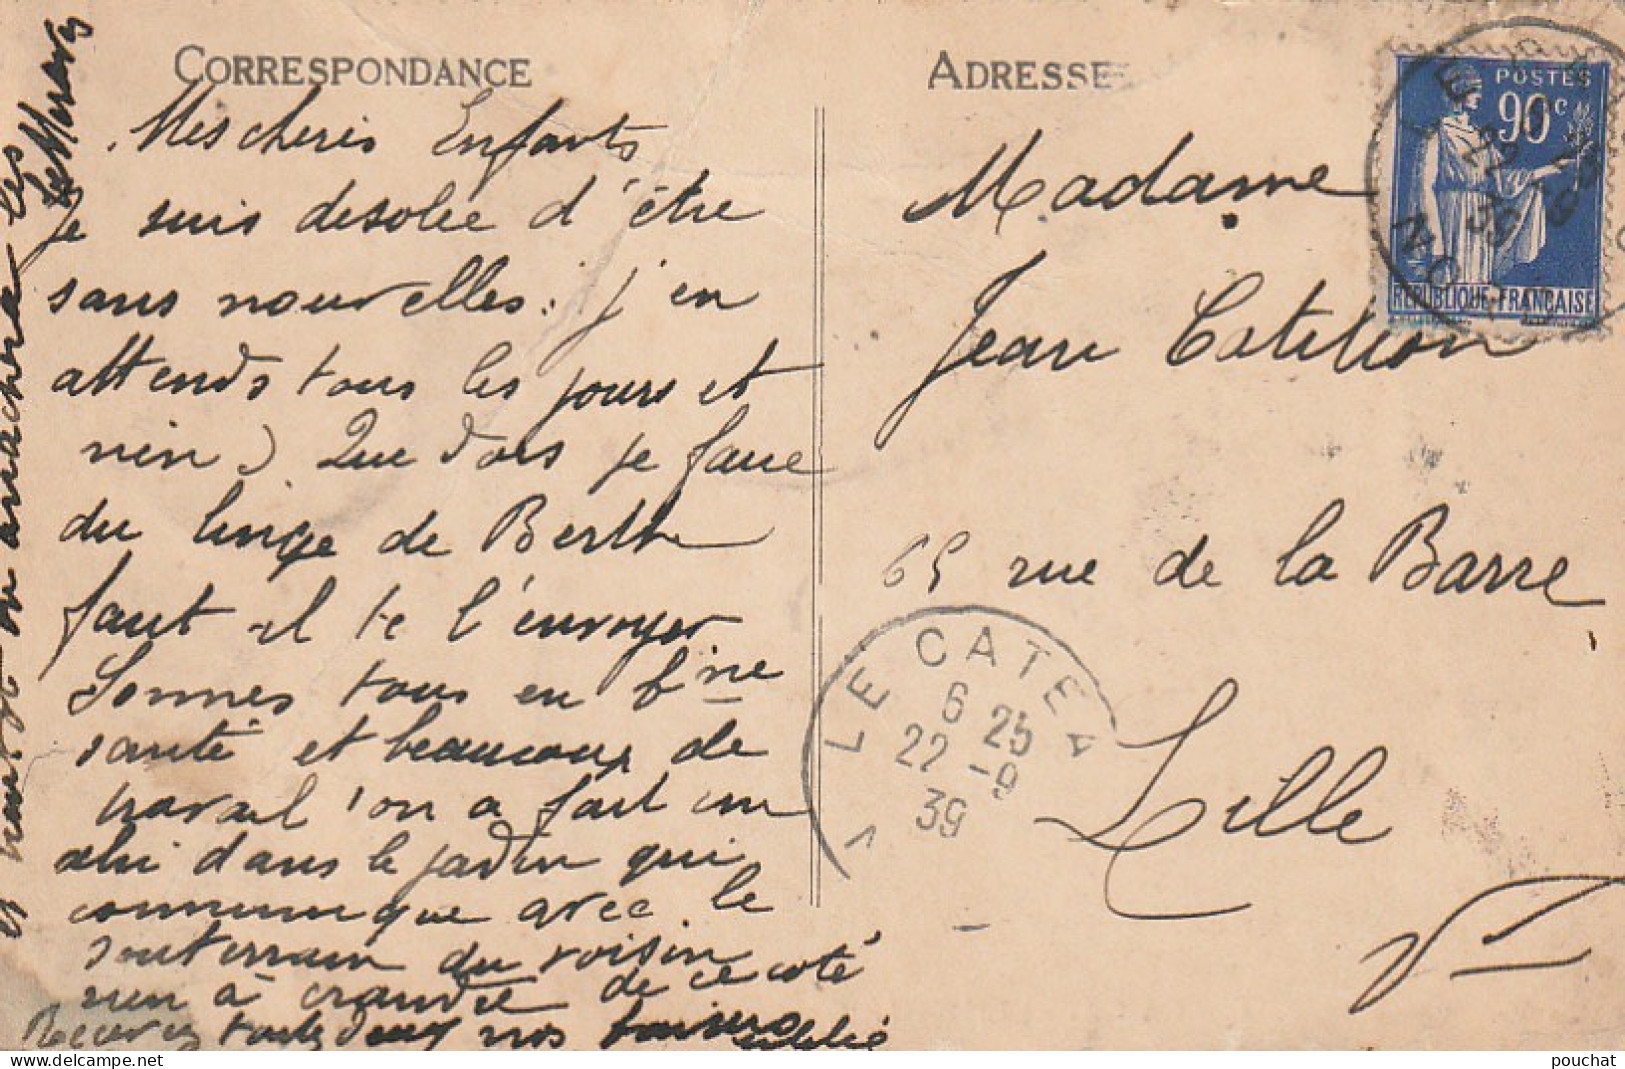 CORRESPONDANCE
Mes cheris Enfants
Je suis desolée d'être
sans nouvelles. j'en
attends tous les jours et
rien) Que dois je faire
du linge de Berthe
faut il te l'envoyer
Sommes tous en bne
santé et beaucoup de
travail l'on a fait un
abri dans le jardin qui
communique avec le
souterrain du voisin
rien à craindre de ce côté
Recevez toutes deux nos
on arrachera les
ADRESSE
Madame
Jean Catillon
65 rue de la Barre
Lille
POSTES
90c
REPUBLIQUE FRANÇAISE
LE CATEA
6 25
22 -9
39
pouchat